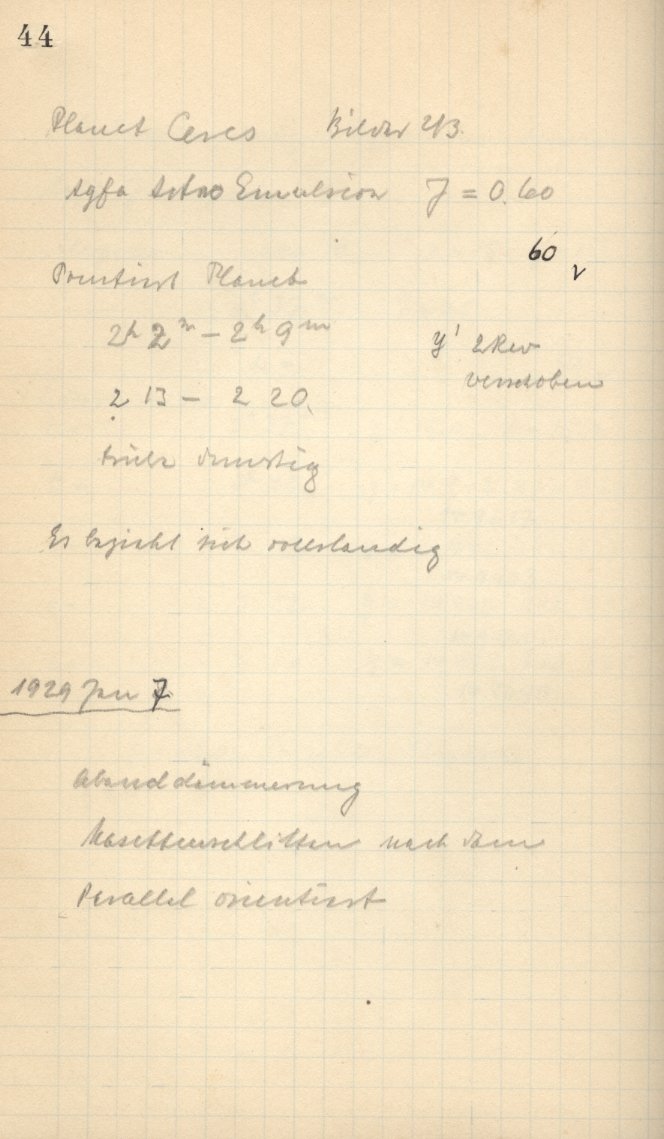 44
Planet Ceres Bilder 2/3.
Agfa Astro Emulsion J = 0.60
60
Pointirt Planet
2h 2m – 2h 9m y' 2 Rev
verschoben
2 13 – 2 20.
trübe dunstig
Es bezieht sich vollständig
1929 Jan 7
Abenddämmerung
Kassettenschlitten nach dem
Parallel orientirt